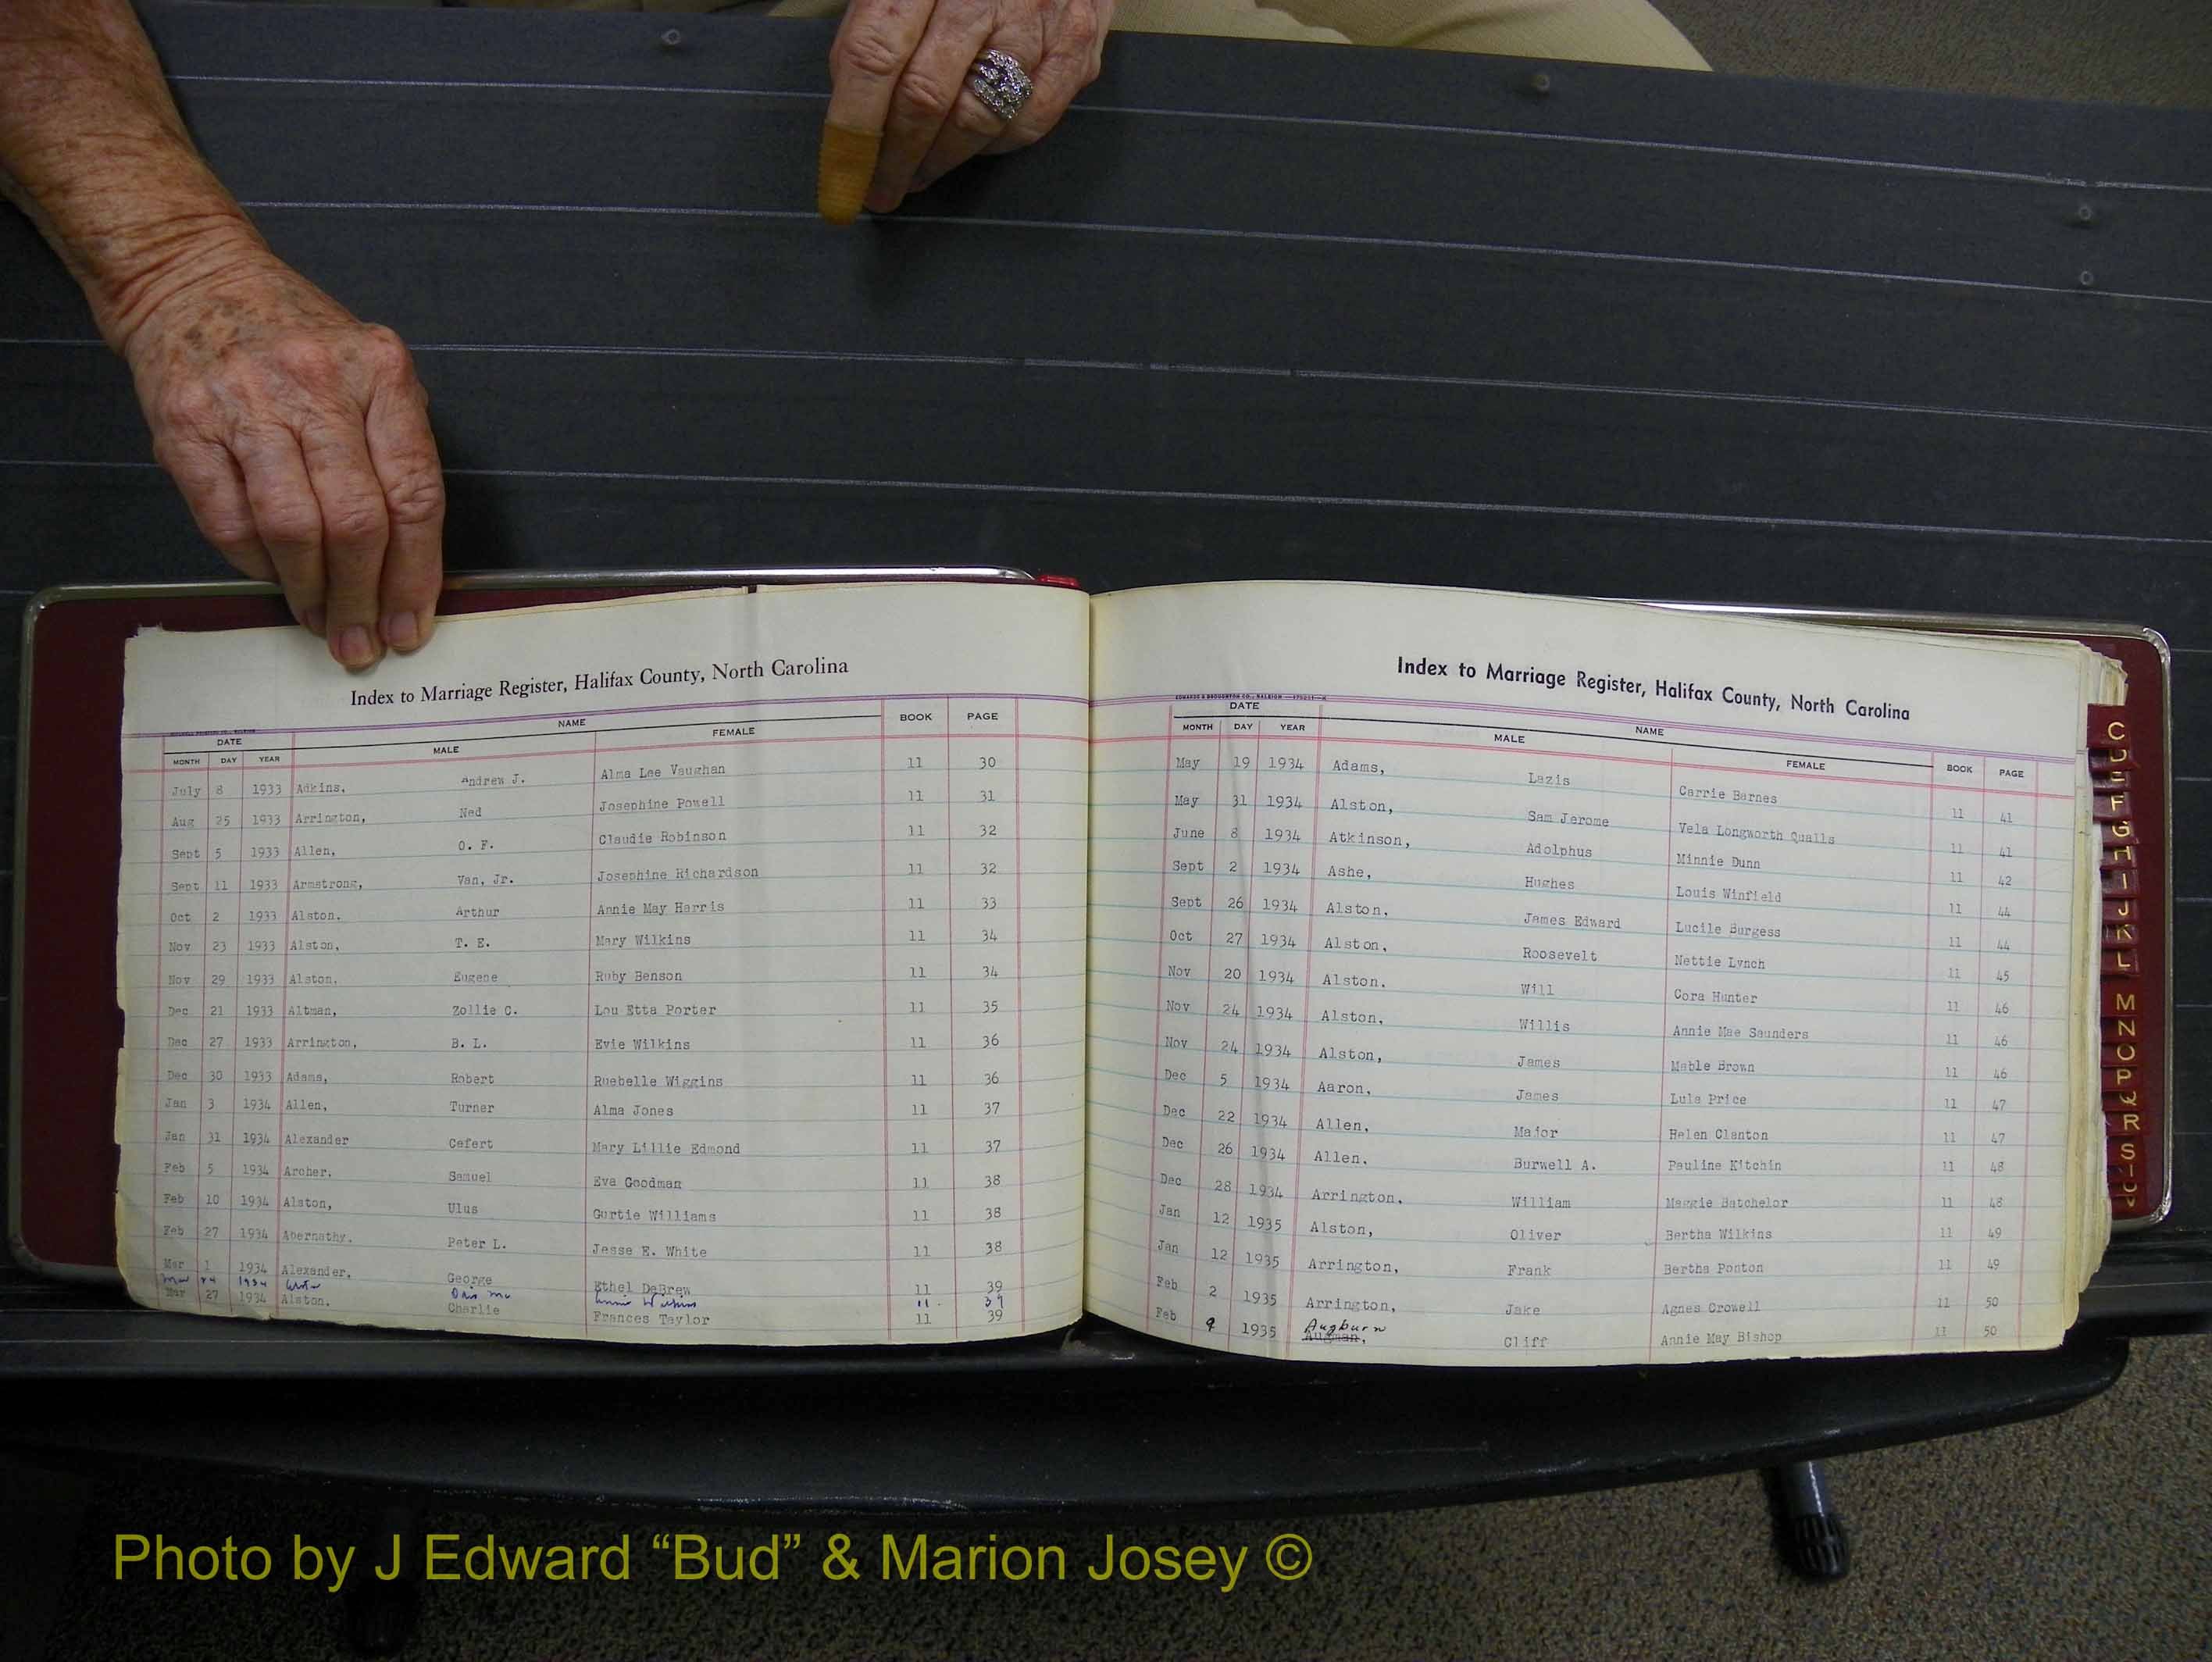 Index to Marriage Register, Halifax County, North Carolina
DATE NAME BOOK PAGE
MONTH DAY YEAR MALE FEMALE
July 8 1933 Adkins, Andrew J. Alma Lee Vaughan 11 30
Aug 25 1933 Arrington, Ned Josephine Powell 11 31
Sept 5 1933 Allen, O. F. Claudie Robinson 11 32
Sept 11 1933 Armstrong, Van, Jr. Josephine Richardson 11 32
Oct 2 1933 Alston. Arthur Annie May Harris 11 33
Nov 23 1933 Alston, T. E. Mary Wilkins 11 34
Nov 29 1933 Alston. Eugene Ruby Benson 11 34
Dec 21 1933 Altman, Zollie C. Lou Etta Porter 11 35
Dec 27 1933 Arrington, B. L. Evie Wilkins 11 36
Dec 30 1933 Adams, Robert Ruebelle Wiggins 11 36
Jan 3 1934 Allen, Turner Alma Jones 11 37
Jan 31 1934 Alexander Cefert Mary Lillie Edmond 11 37
Feb 5 1934 Archer, Samuel Eva Goodman 11 38
Feb 10 1934 Alston, Ulus Gurtie Williams 11 38
Feb 27 1934 Abernathy. Peter L. Jesse E. White 11 38
Mar 1 1934 Alexander, George Ethel DeBrew 11 39
Mar 24 1934 11 39
Mar 27 1934 Alston. Charlie Frances Taylor 11 39
Index to Marriage Register, Halifax County, North Carolina
EDWARDS & BROUGHTON CO., RALEIGH
DATE NAME
MONTH DAY YEAR MALE FEMALE BOOK PAGE
May 19 1934 Adams, Lazis Carrie Barnes 11 41
May 31 1934 Alston, Sam Jerome Vela Longworth Qualls 11 41
June 8 1934 Atkinson, Adolphus Minnie Dunn 11 42
Sept 2 1934 Ashe, Hughes Louis Winfield 11 44
Sept 26 1934 Alston, James Edward Lucile Burgess 11 44
Oct 27 1934 Alston, Roosevelt Nettie Lynch 11 45
Nov 20 1934 Alston. Will Cora Hunter 11 46
Nov 24 1934 Alston, Willis Annie Mae Saunders 11 46
Nov 24 1934 Alston, James Mable Brown 11 46
Dec 5 1934 Aaron, James Lula Price 11 47
Dec 22 1934 Allen, Major Helen Clanton 11 47
Dec 26 1934 Allen, Burwell A. Pauline Kitchin 11 48
Dec 28 1934 Arrington, William Maggie Batchelor 11 48
Jan 12 1935 Alston, Oliver Bertha Wilkins 11 49
Jan 12 1935 Arrington, Frank Bertha Ponton 11 49
Feb 2 1935 Arrington, Jake Agnes Crowell 11 50
Feb 9 1935 Augburn Augman, Cliff Annie May Bishop 11 50
C
D
E
F
G
H
I
J
K
L
M
N
O
P
Q
R
S
Photo by J Edward “Bud” & Marion Josey ©